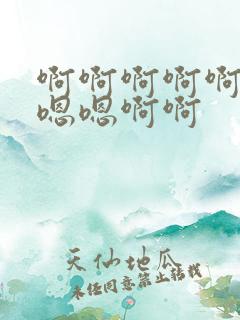 啊啊啊啊啊
嗯嗯啊啊
天仙地瓜
未经同意禁止转载